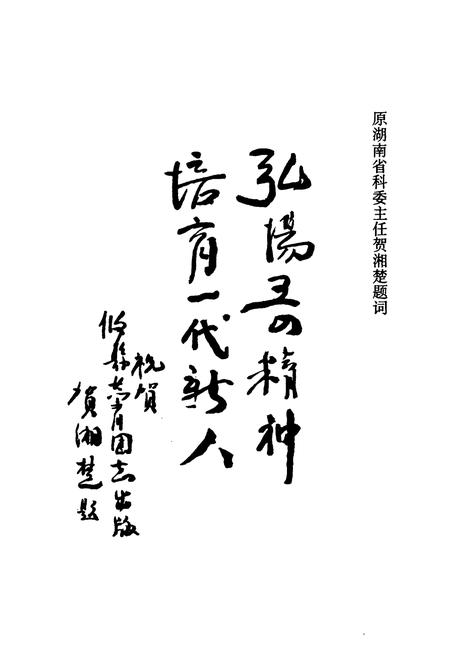 原湖南省科委主任贺湘楚题词
弘揚五四精神
培育一代新人
祝賀
攸县共青团志出版
賀湘楚题